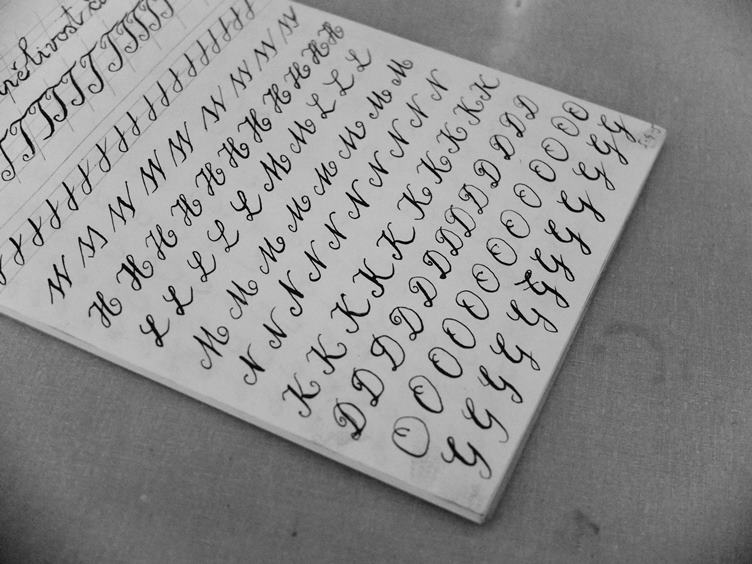 pělivost
T T T T T T T T T
W W W W W W W W W
H H H H H H H H H H H
L L L L L M M L L L
M M M M M M M M
N N N N N N N N N N
K K K K K K K K K K
D D D D D D D D D D D D D
O O O O O O O O O O O O O
G G G G G G G G G G G G